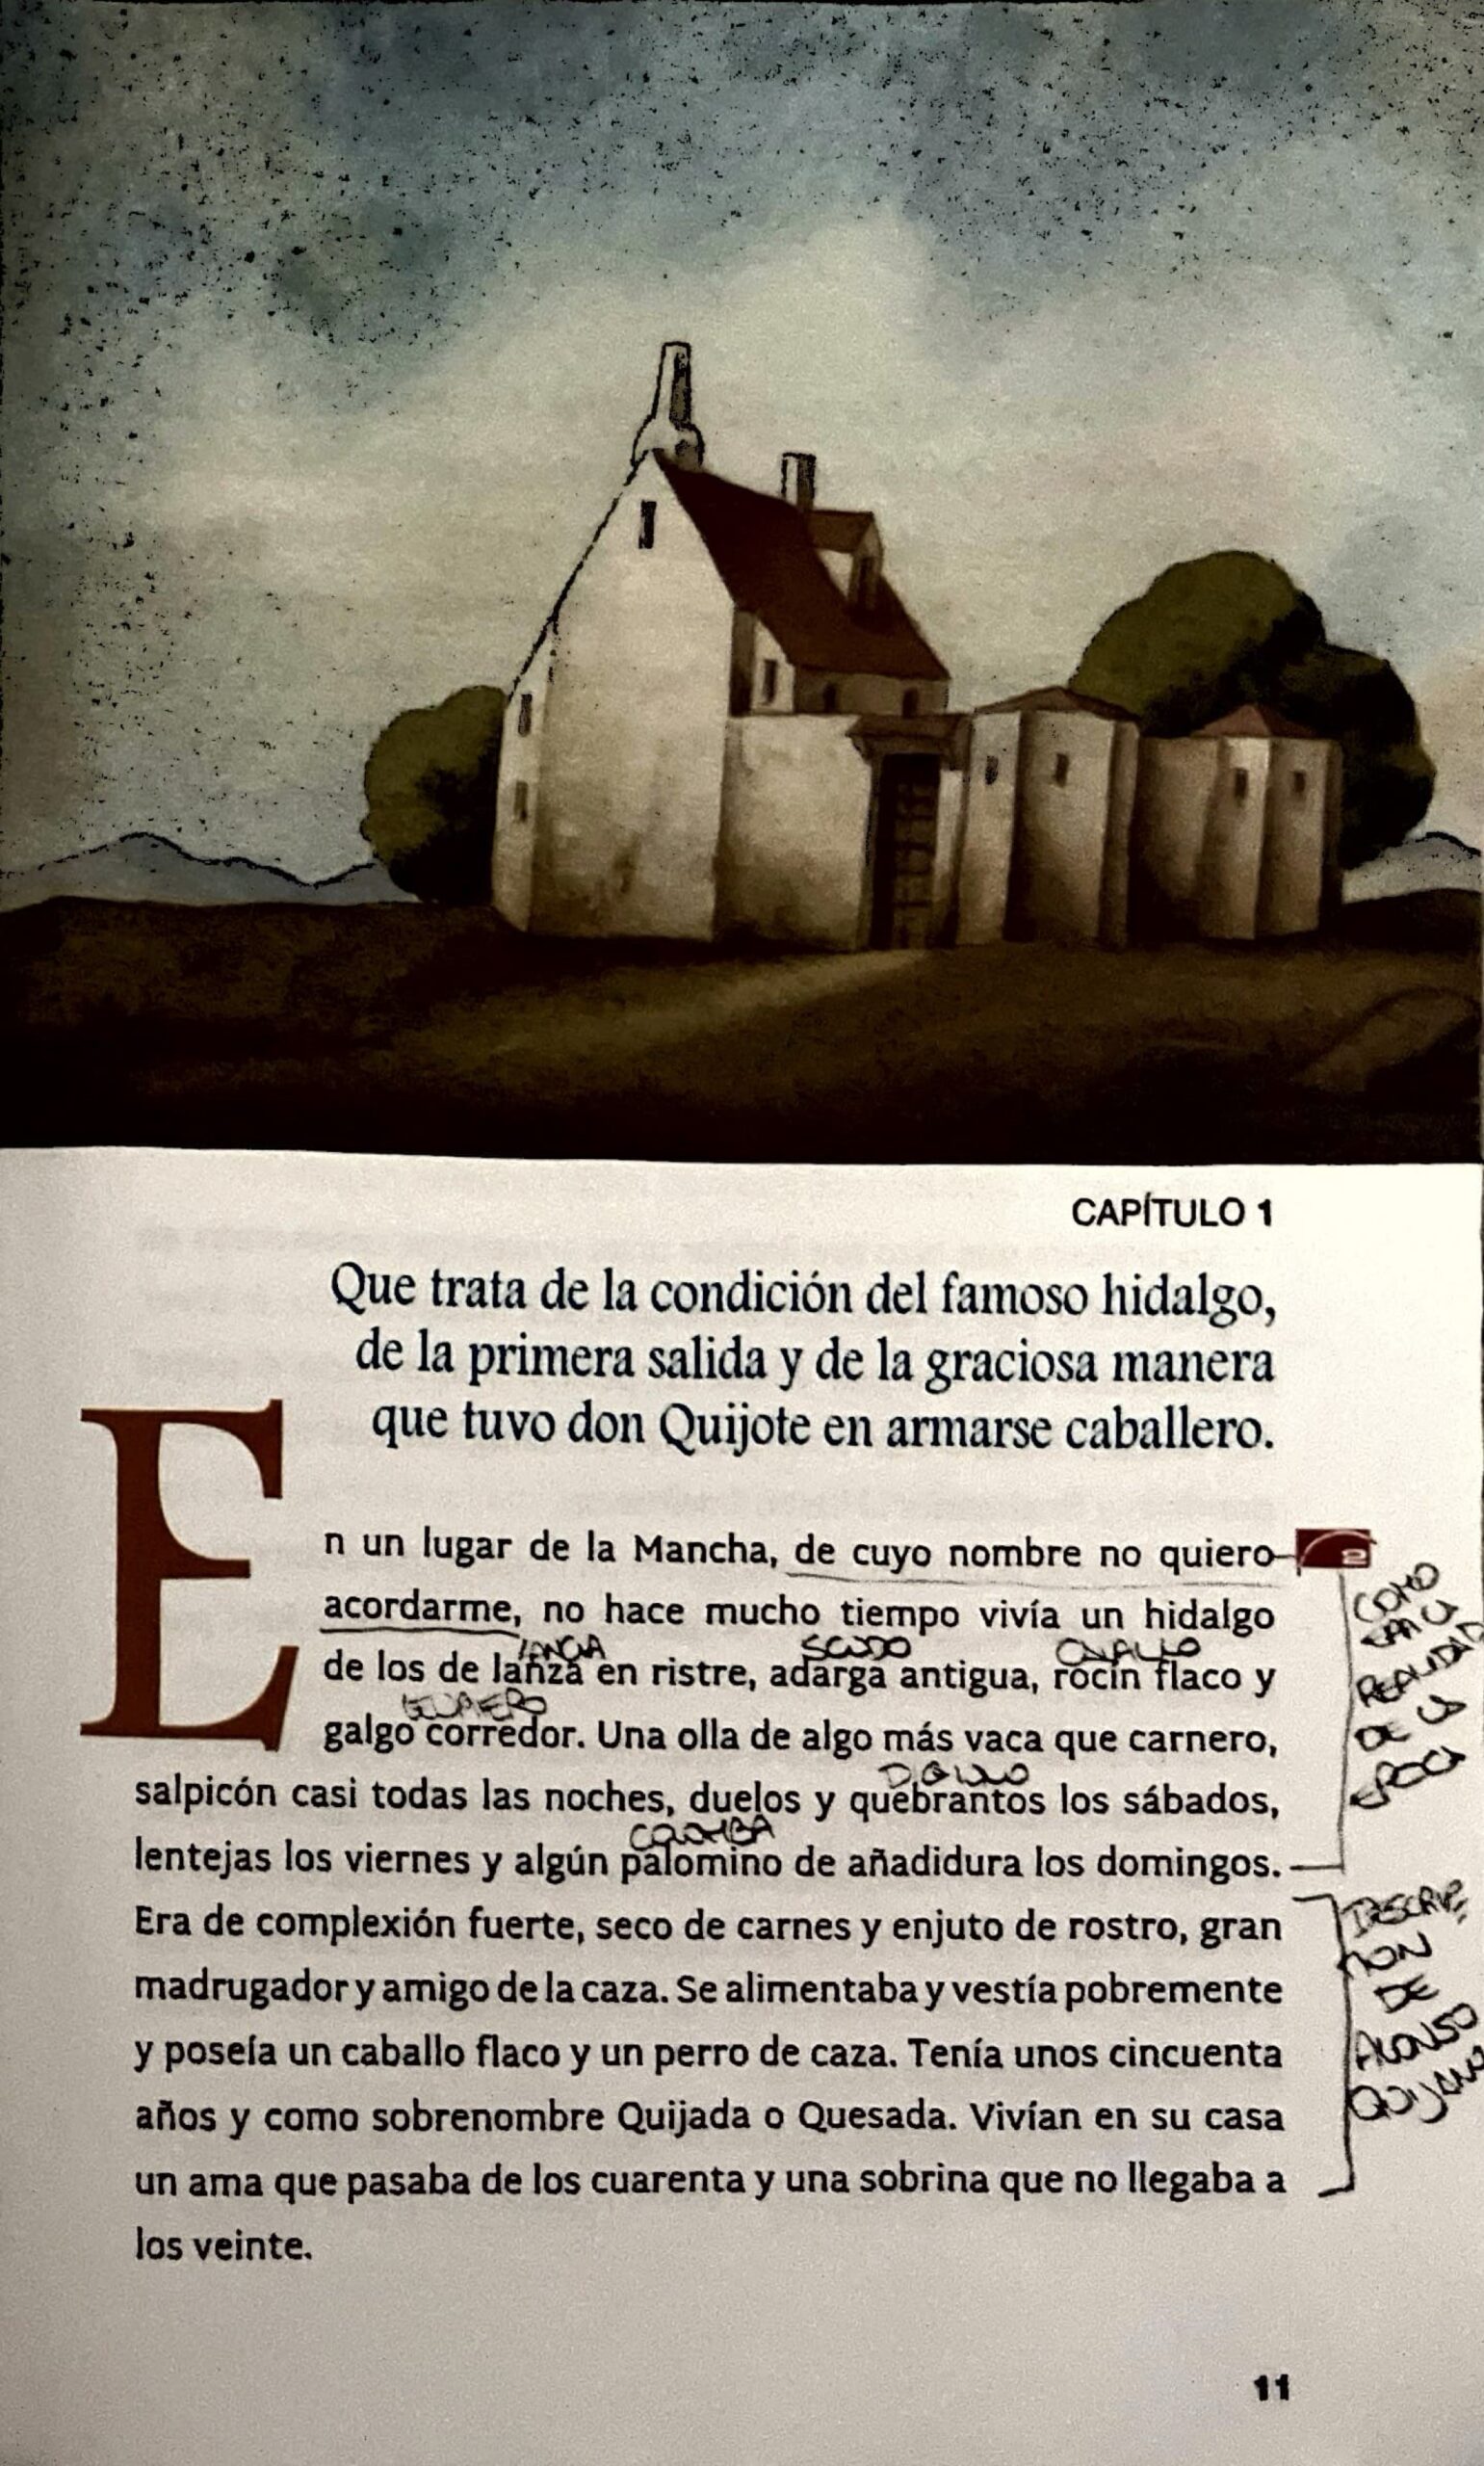 CAPÍTULO 1
Que trata de la condición del famoso hidalgo,
de la primera salida y de la graciosa manera
que tuvo don Quijote en armarse caballero.
En un lugar de la Mancha, de cuyo nombre no quiero
2
acordarme, no hace mucho tiempo vivía un hidalgo
LANCIA SCUDO CAVALLO
de los de lanza en ristre, adarga antigua, rocín flaco y
galgo corredor. Una olla de algo más vaca que carnero,
salpicón casi todas las noches, duelos y quebrantos los sábados,
COLOMBA
lentejas los viernes y algún palomino de añadidura los domingos.
COMO
REALIDAD
DE LA
EPOCA
Era de complexión fuerte, seco de carnes y enjuto de rostro, gran
madrugador y amigo de la caza. Se alimentaba y vestía pobremente
y poseía un caballo flaco y un perro de caza. Tenía unos cincuenta
años y como sobrenombre Quijada o Quesada. Vivían en su casa
un ama que pasaba de los cuarenta y una sobrina que no llegaba a
los veinte.
DE
ALONSO
QUIJANO
11